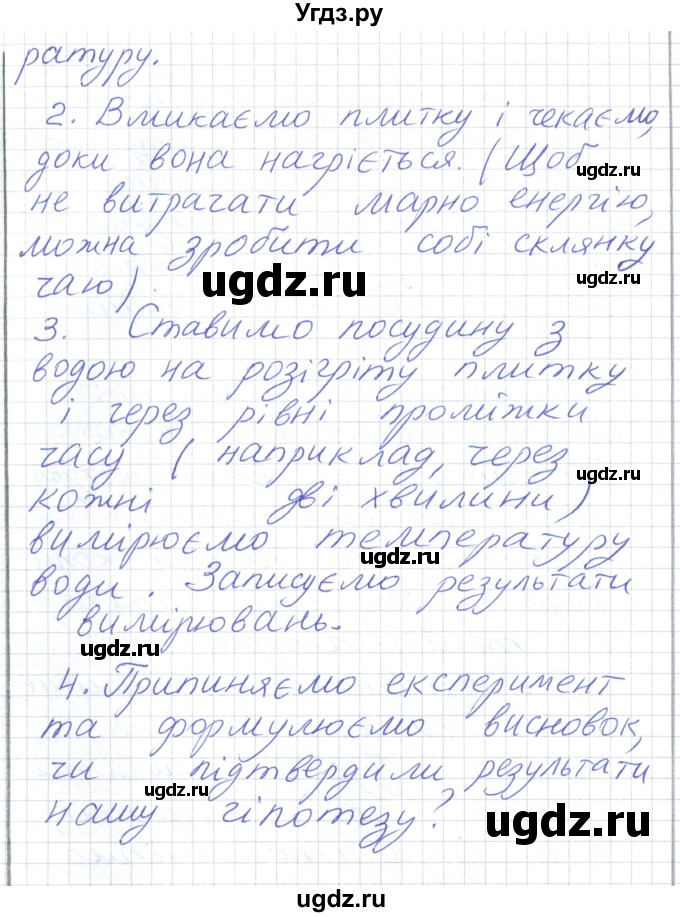 Угдз.ру
ратуру.
2. Вмикаємо плитку і чекаємо,
доки вона нагріється. (Щоб
ugdz.ru
не витрачати марно енергію,
можна зробити собі склянку
чаю).
ugdz.ru
ugdz.ru
3. Ставимо посудину з
водою на розігріту плитку
і через рівні проміжки
часу (наприклад, через
ugdz.ru
кожні дві хвилини)
вимірюємо температуру
ugdz.ru
води. Записуємо результати
вимірювань.
ugdz.ru
4. Припиняємо експеримент
та формулюємо висновок,
чи підтвердили результати
ugdz.ru
нашу гіпотезу?
ugdz.ru
ugdz.ru